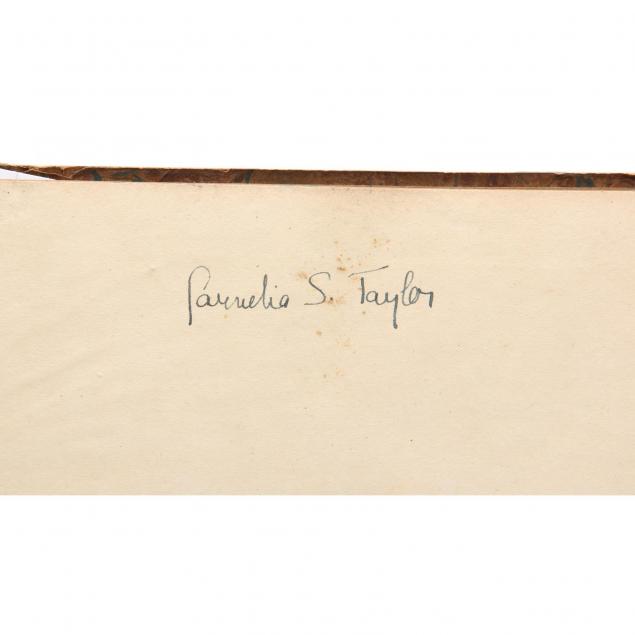 Cornelia S. Taylor